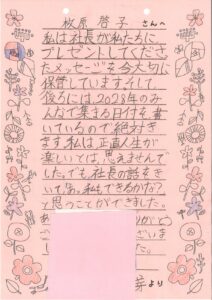 枚原 啓子 さんへ
私は社長が私たちに
プレゼントしてくださっ
たメッセージを今大切に
保管していますそして、
後ろには、2028年のみ
んなで集まる日付を書
いているので絶対き
ます。私は正直人生が
楽しいとは、思えませんで
した。でも社長の話をき
いて、私もできるかな?
と思うことができました。
より